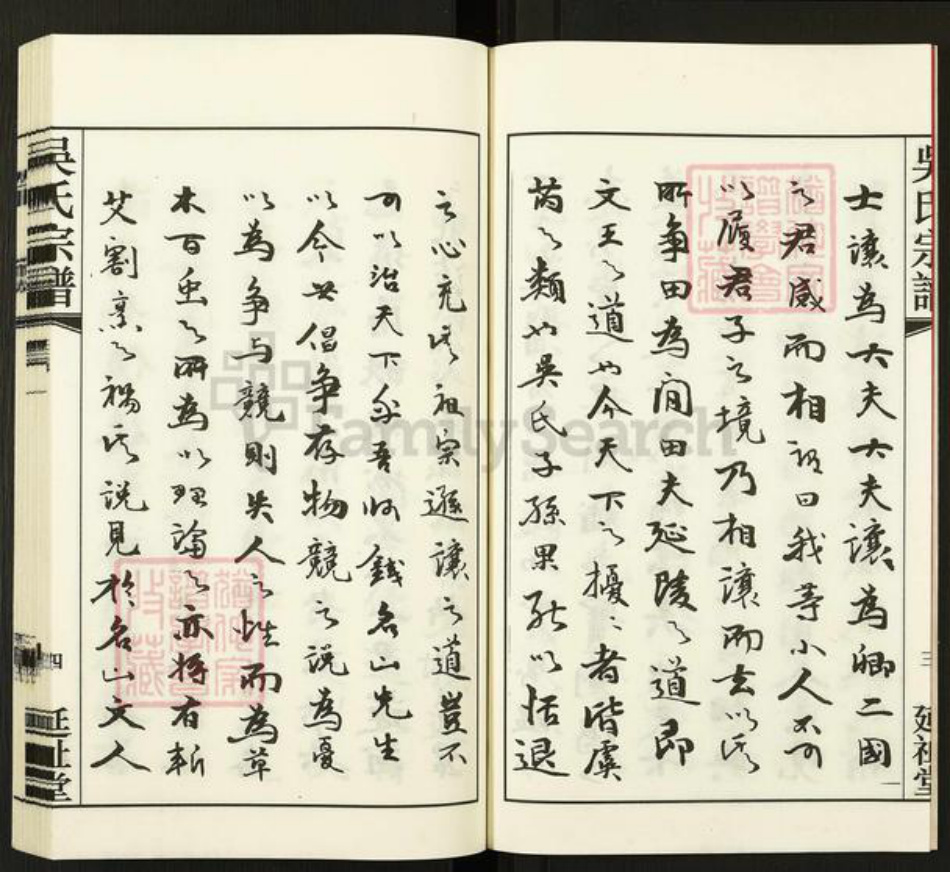 吳氏宗譜
三
延祉堂
士讓為大夫大夫讓為卿二國
之君感而相謂曰我等小人不可
以履君子之境乃相讓而去以其
所爭田為閒田夫延陵之道即
文王之道也今天下之擾擾者皆虞
芮之類也吳氏子孫果能以恬退
之心充其祖宗遜讓之道豈不
可以治天下乎吾師錢名山先生
以今世倡爭存物競之說為憂
以為爭与競則失人之性而為草
木百虫之所為以理論之亦將有斬
艾割烹之禍其說見於名山文人
吳氏宗譜
一
四
延祉堂
FamilySearch